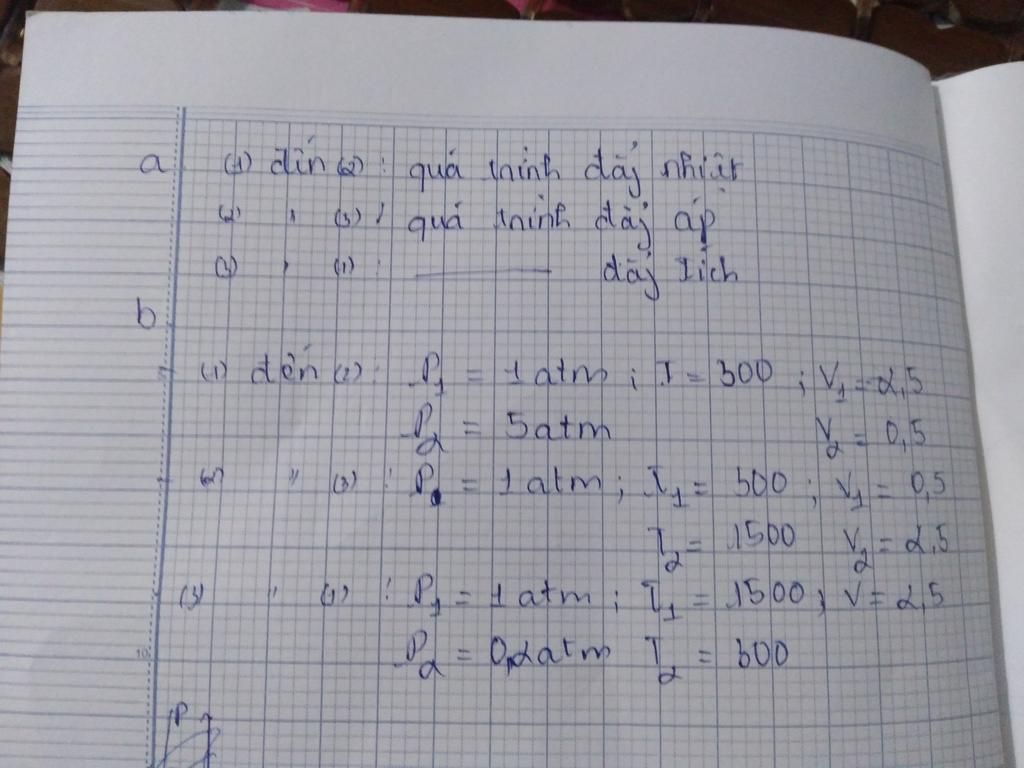 a (1) đến (2) : quá trình đẳng nhiệt
(2) " (3) : quá trình đẳng áp
(3) " (1) : ——— đẳng tích
b
(1) đến (2) : P₁ = 1 atm ; T = 300 ; V₁ = 2,5
P₂ = 5 atm V₂ = 0,5
(2) " (3) : P = 1 atm ; T₁ = 300 ; V₁ = 0,5
T₂ = 1500 V₂ = 2,5
(3) " (1) : P₁ = 1 atm ; T₁ = 1500 ; V = 2,5
P₂ = 0,2 atm T₂ = 300
P